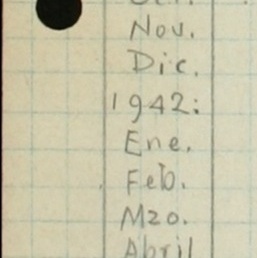 Nov.
Dic.
1942:
Ene.
Feb.
Mzo.
Abril